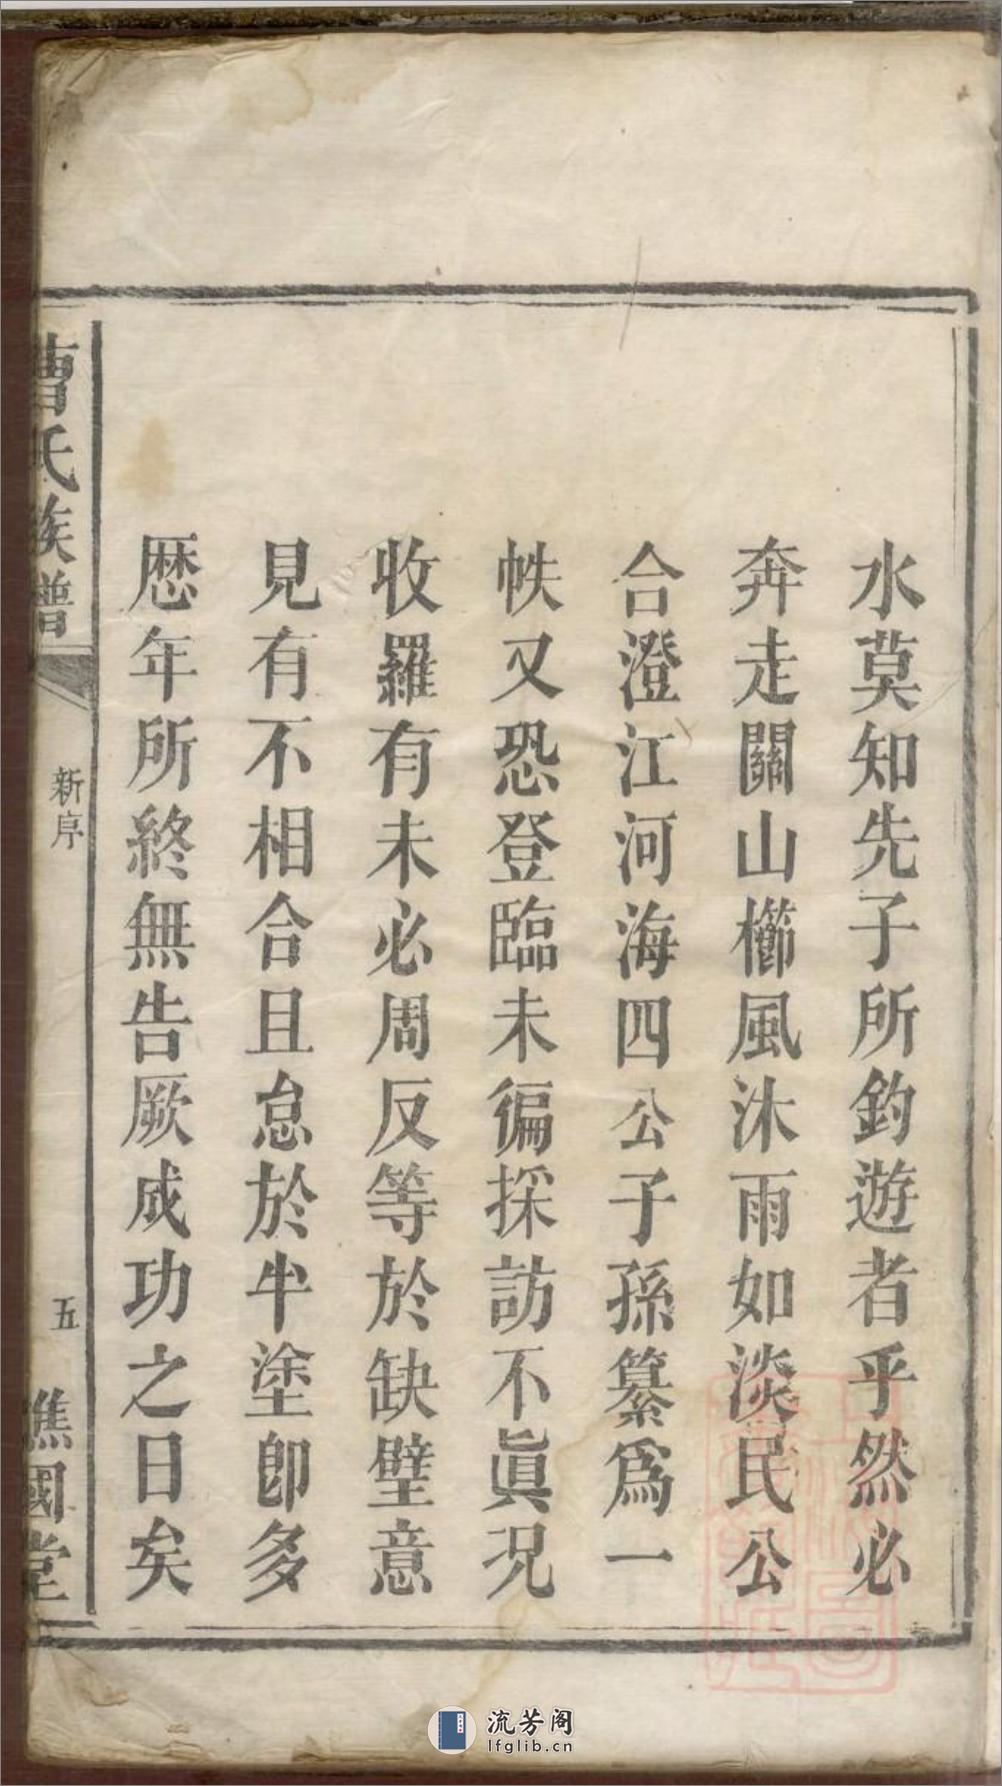 水莫知先子所釣遊者乎然必
奔走關山櫛風沐雨如淡民公
合澄江河海四公子孫纂爲一
帙又恐登臨未徧採訪不眞况
收羅有未必周反等於缺壁意
見有不相合且怠於半塗卽多
歴年所終無告厥成功之日矣
曹氏族譜
新序
五
譙國堂
流芳阁
lfglib.cn